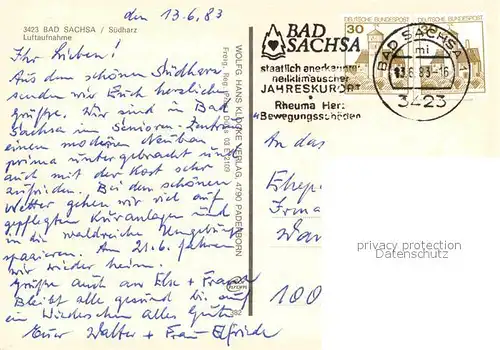 den 13.6.83
3423 BAD SACHSA / Südharz
Luftaufnahme
Ihr Lieben!
Aus dem schönen Südharz
senden wir Euch herzliche
Grüße. Wir sind in Bad
Sachsa im Senioren-Zentrum
einem modernen Neubau
prima untergebracht und
auch mit der Kost sehr
zufrieden. Bei dem schönen
Wetter gehen wir viel auf
gepflegten Kuranlagen und
in die waldreiche Umgebung
spazieren. Am 21.6. fahren
wir wieder heim.
Grüße auch an Else + Franz
Bleibt alle gesund bis auf
ein Wiedersehen alles Gute
Euer Walter + Frau Elfriede
WOLFG. HANS KLOCKE VERLAG, 4790 PADERBORN
Freig. Reg. 03 E 2109
BAD
SACHSA
staatlich anerkannter
heilklimatischer
JAHRESKURORT
Rheuma Herz
Bewegungsschäden
30
DEUTSCHE BUNDESPOST
DEUTSCHE BUNDESPOST
BAD SACHSA 1
mi
13.6.83-16
3423
An das
Firma
100
privacy protection
Datenschutz